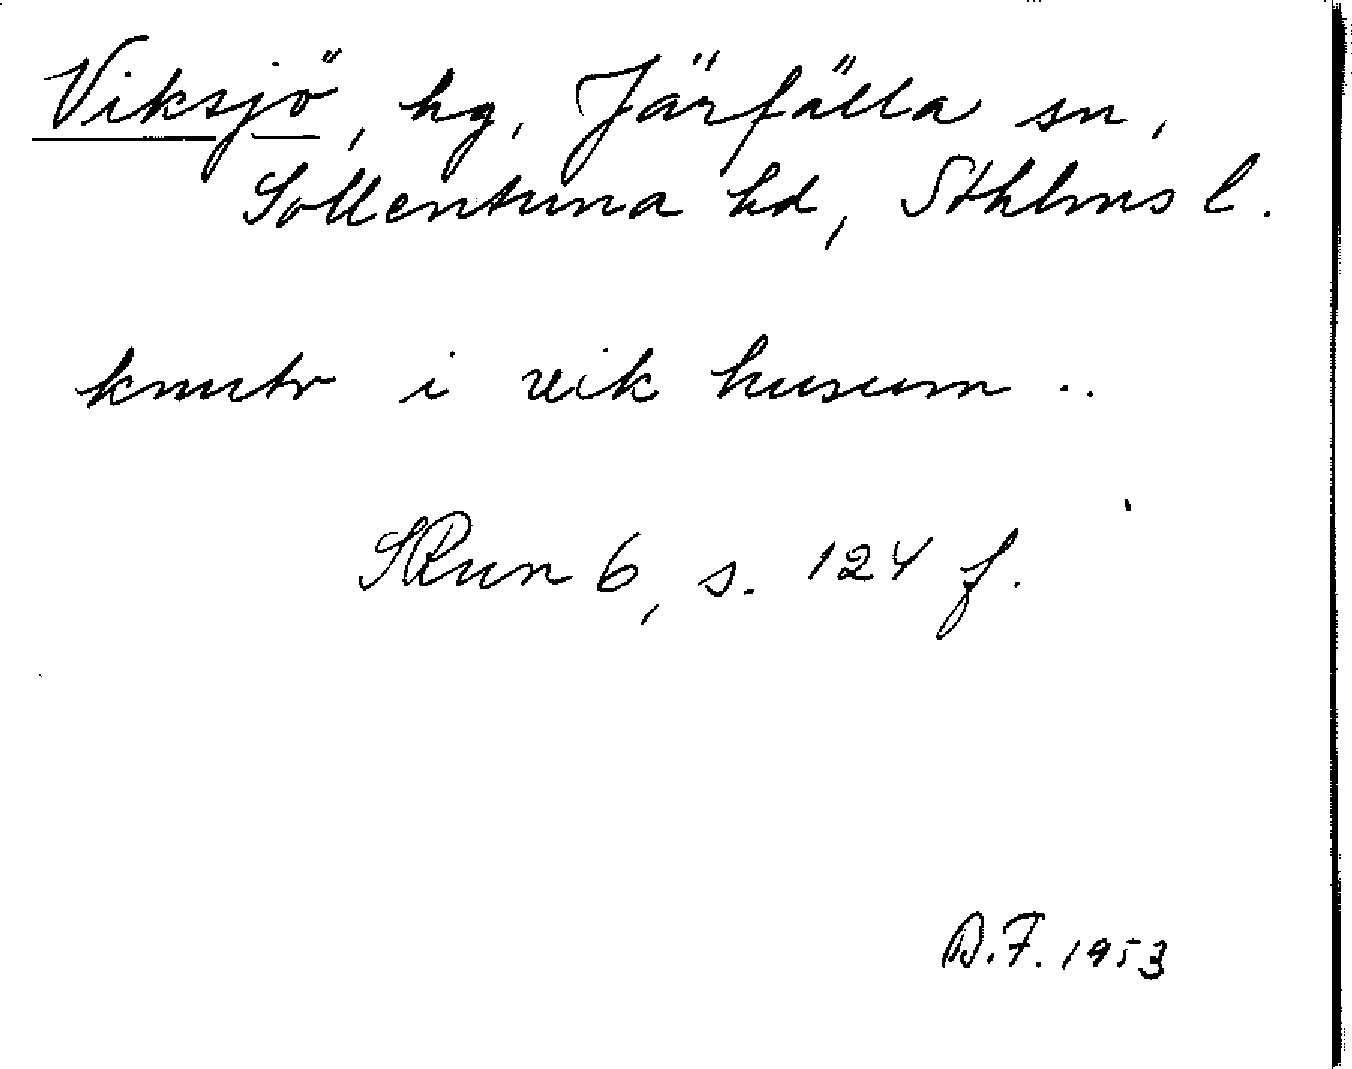 Viksjö, hg, Järfälla sn,
Sollentuna hd, Sthlms l.
knutr i uik husum ..
SRun 6, s. 124 f.
D.F. 1953